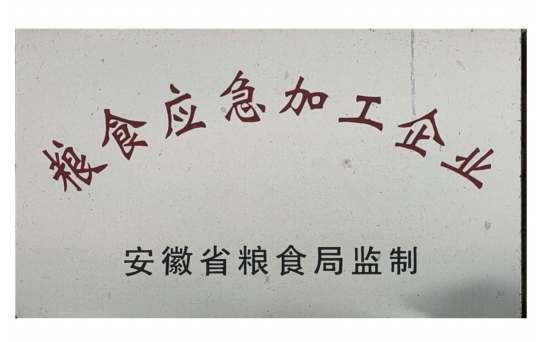 粮食应急加工企业
安徽省粮食局监制